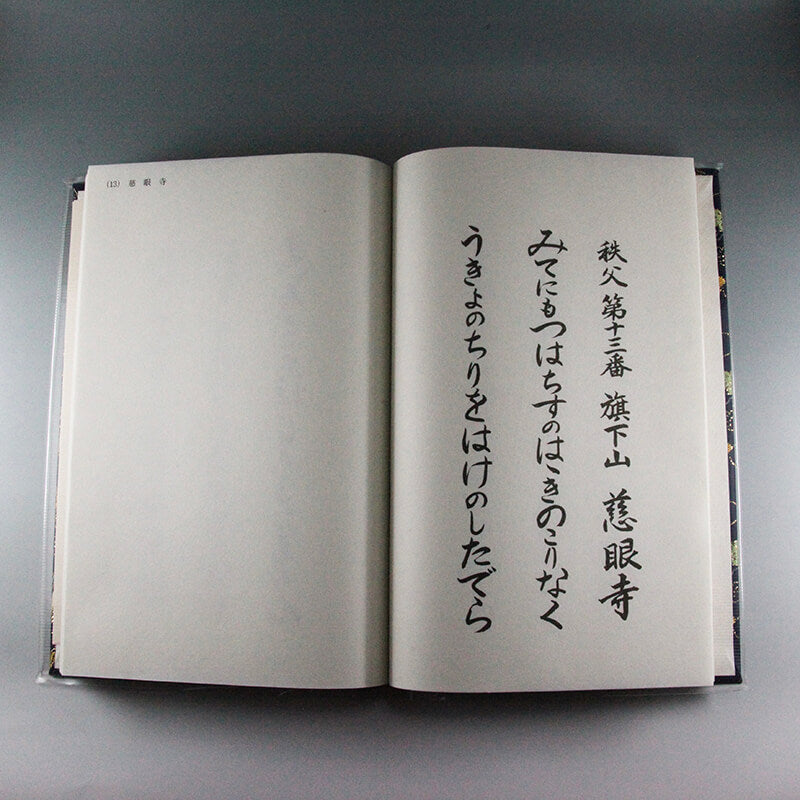 秩父 第十三番 旗下山 慈眼寺
みてにもつはちすのはゝきのこりなく
うきよのちりをはけのしたでら
(13) 慈眼寺